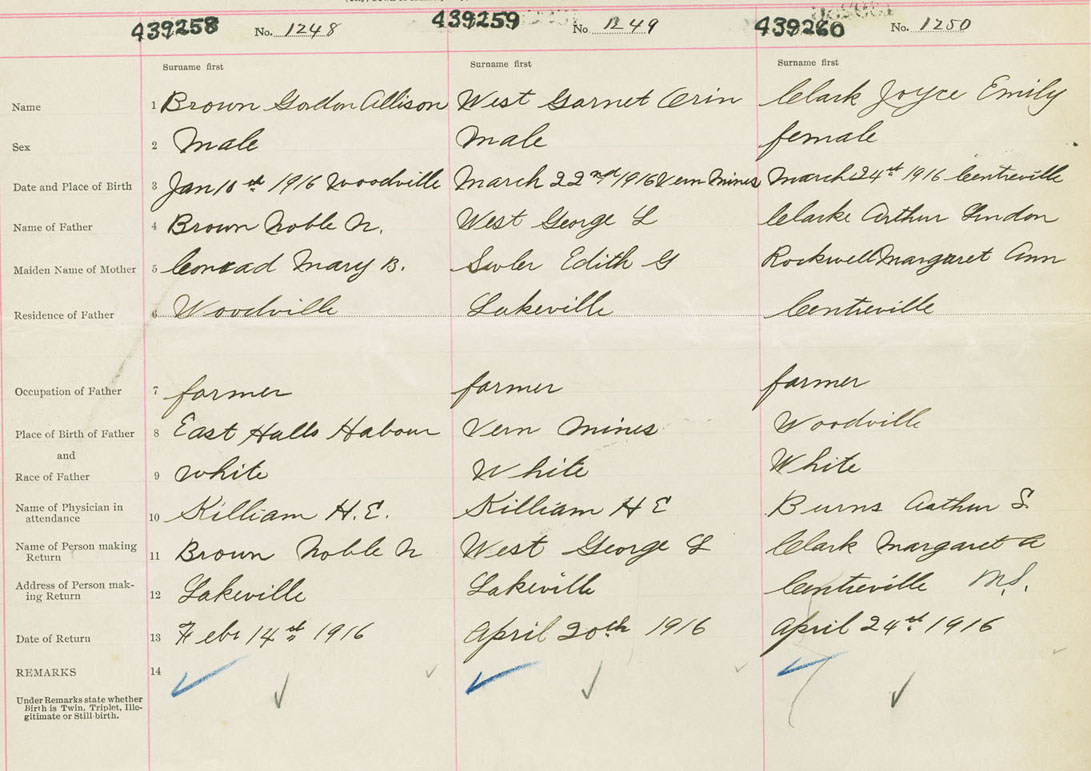 439258 No. 1248 439259 No. 1249 439260 No. 1250
Surname first Surname first Surname first
Name 1 Brown Gordon Allison West Garnet Orin Clark Joyce Emily
Sex 2 Male Male female
Date and Place of Birth 3 Jan 10th 1916 Woodville March 22nd 1916 Vern Mines March 24st 1916 Centreville
Name of Father 4 Brown Noble N. West George L Clarke Arthur Lindon
Maiden Name of Mother 5 Conrad Mary B. Edith G Rockwell Margaret Ann
Residence of Father 6 Woodville Lakeville Centreville
Occupation of Father 7 farmer farmer farmer
Place of Birth of Father 8 East Halls Habour Vern Mines Woodville
and
Race of Father 9 white White White
Name of Physician in
attendance 10 Killiam H.E. Killiam H E Burns Arthur S.
Name of Person making
Return 11 Brown Noble N West George L Clark Margaret A
Address of Person mak-
ing Return 12 Lakeville Lakeville Centreville
Date of Return 13 Feb 14st 1916 April 20th 1916 April 24st 1916
REMARKS 14
Under Remarks state whether
Birth is Twin, Triplet, Ille-
gitimate or Still-birth.